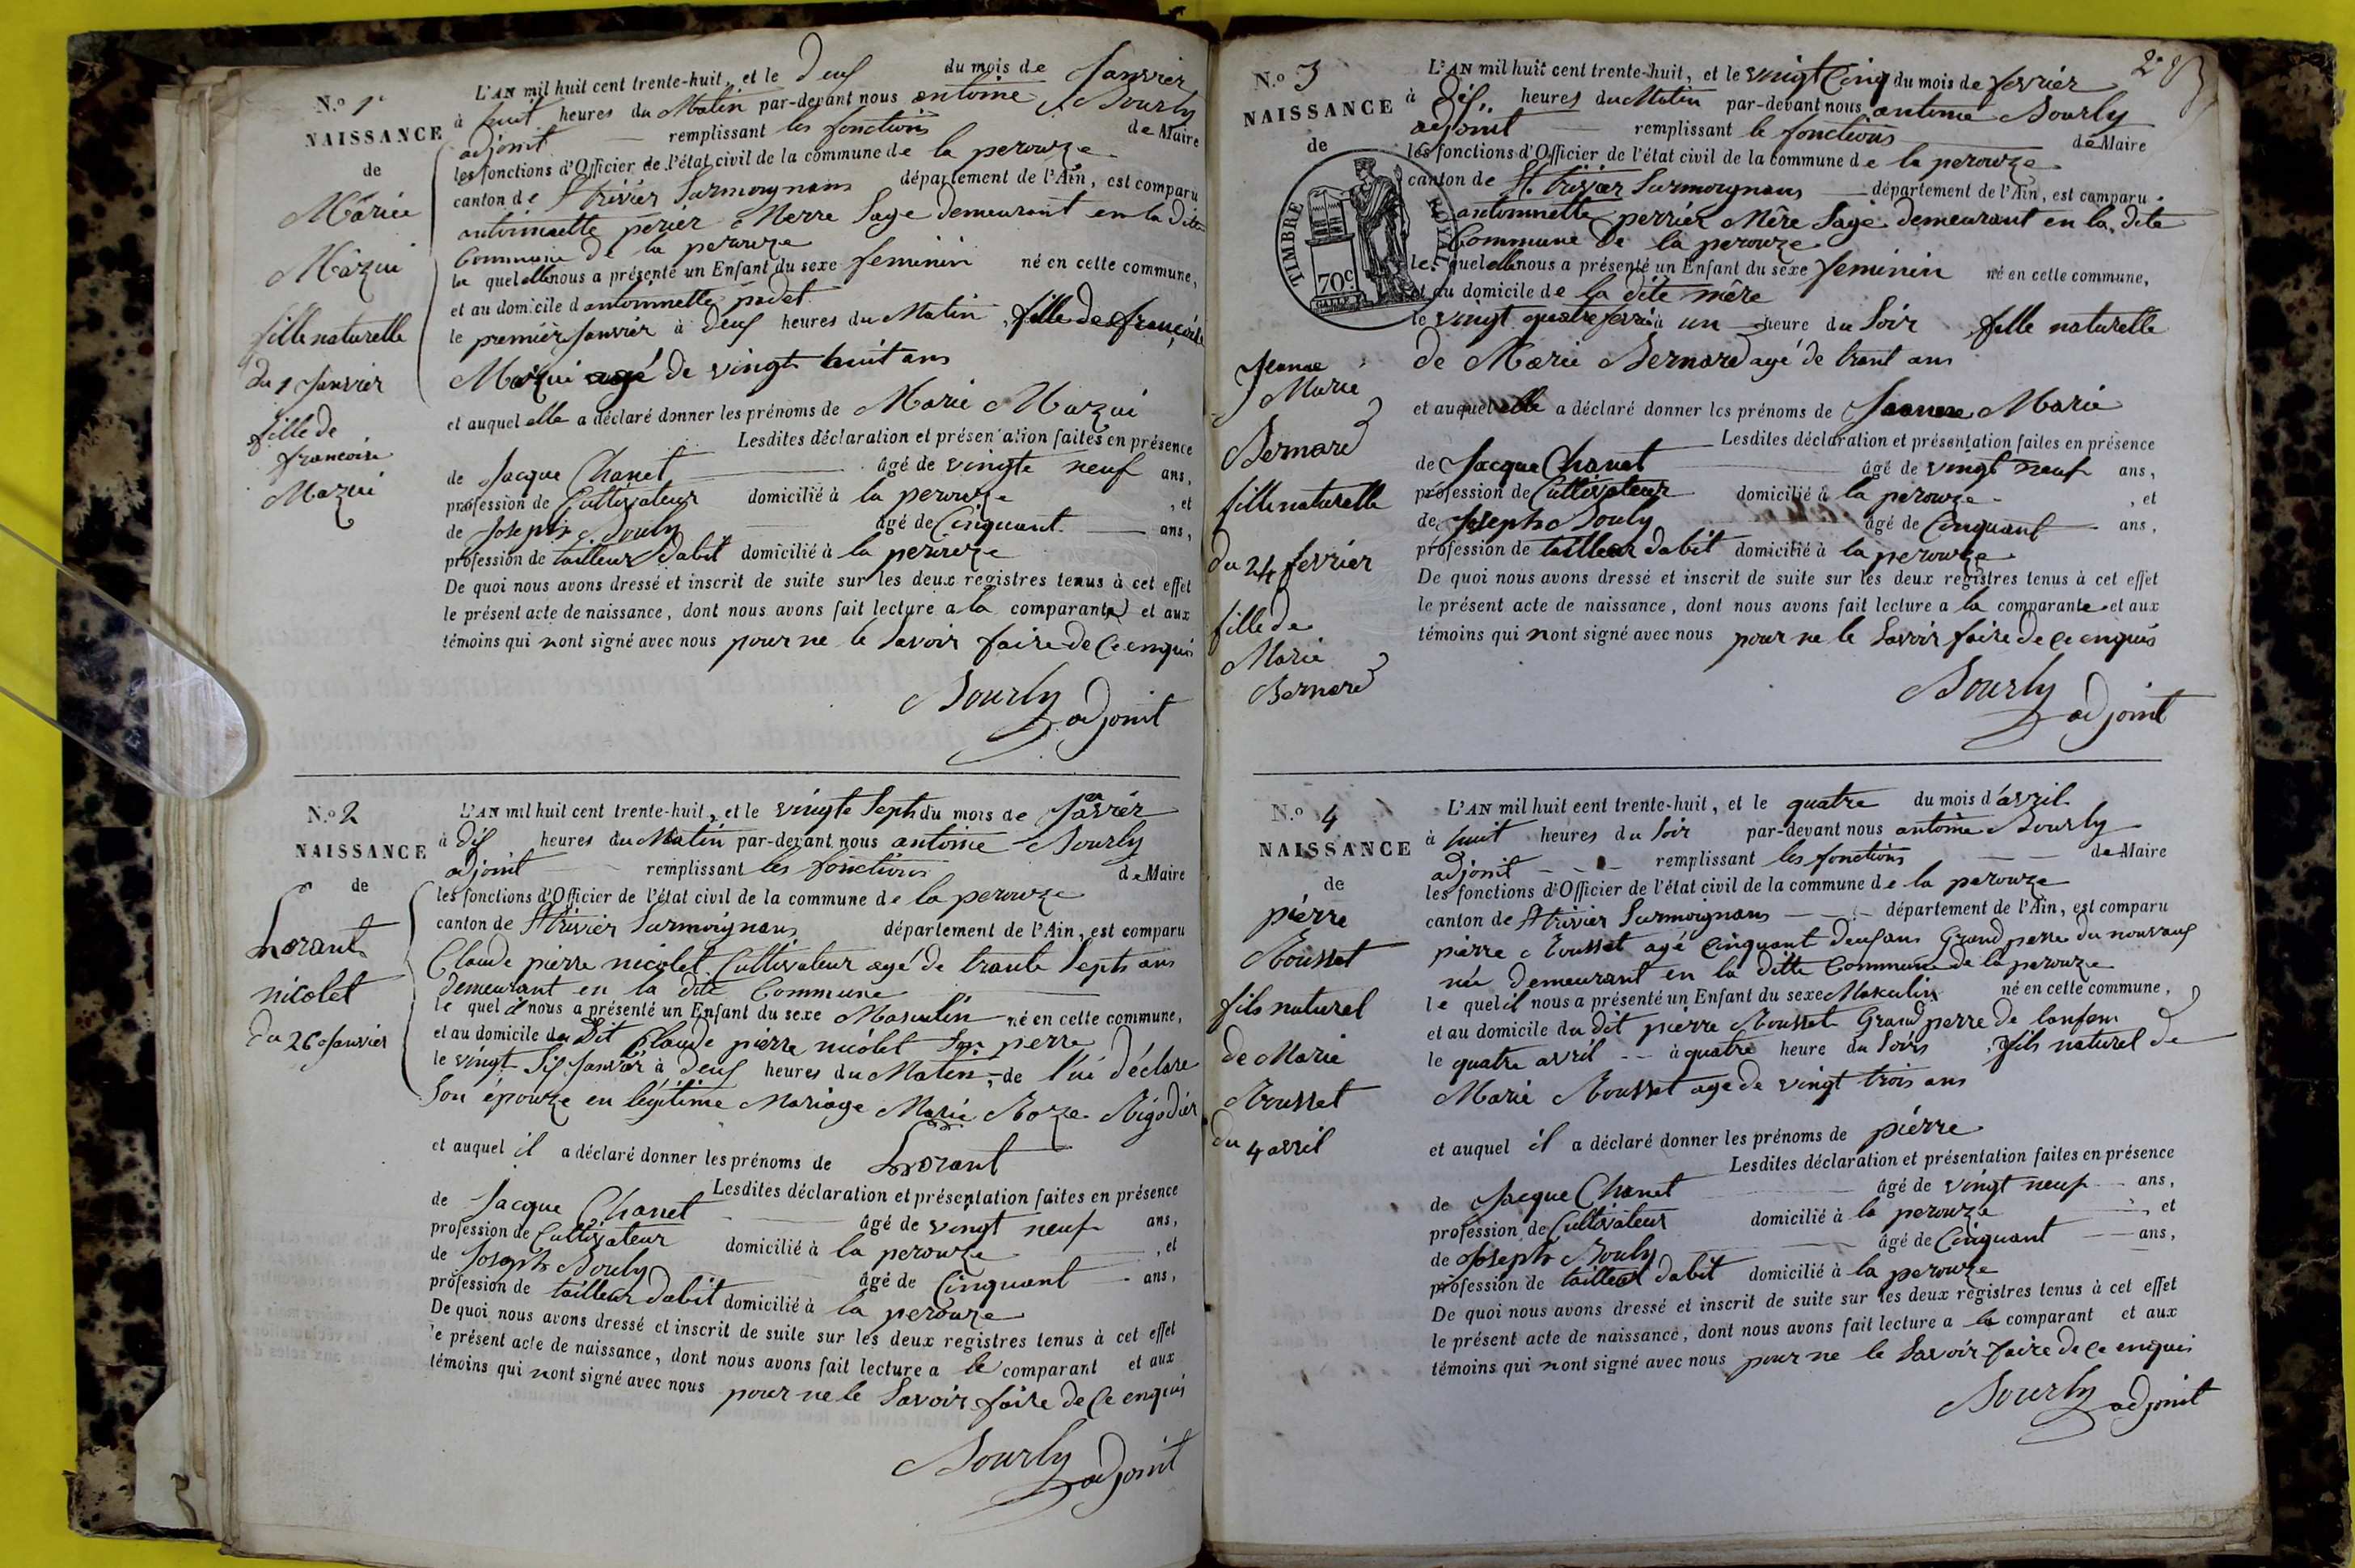 N.º 1er
NAISSANCE
de
Marie
Mazui
fille naturelle
du 1 Janvier
fille de
francoise
Mazui
L'AN mil huit cent trente-huit, et le deux du mois de Janvier
à huit heures du Matin par-devant nous antoine Bourly
adjoint remplissant les fonctions de Maire
les fonctions d'Officier de l'état civil de la commune de la perouze
canton de St trivier Surmoignans département de l'Ain, est comparu
antoinnette perier Merre Sage demeurant en la dite
Commune de la perouze
la quelle nous a présenté un Enfant du sexe feminin né en cette commune,
et au domicile d antoinnette padet
le premier Janvier à deux heures du Matin, fille de françoise
Mazui agé de vingt huit ans
et auquel elle a déclaré donner les prénoms de Marie Mazui
Lesdites déclaration et présentation faites en présence
de Jacque Chanet âgé de vingte neuf ans,
profession de Cultivateur domicilié à la perouze , et
de Joseph Bouly âgé de Cinquant ans,
profession de tailleur dabit domicilié à la perouze
De quoi nous avons dressé et inscrit de suite sur les deux registres tenus à cet effet
le présent acte de naissance, dont nous avons fait lecture a la comparante et aux
témoins qui nont signé avec nous pour ne le Savoir faire de Ce enquis
Bourly
adjoint
N.º 2
NAISSANCE
de
Lorant
nicolet
du 26 Janvier
L'AN mil huit cent trente-huit, et le vingte Sept du mois de Janvier
à dix heures du Matin par-devant nous antoine Bourly
adjoint remplissant les fonctions de Maire
les fonctions d'Officier de l'état civil de la commune de la perouze
canton de St trivier Surmoignans département de l'Ain, est comparu
Claude pierre nicolet Cultivateur agé de trante Septs ans
demeurant en la dite Commune
le quel il nous a présenté un Enfant du sexe Masculin né en cette commune,
et au domicile du Dit Claude pierre nicolet Son perre
le vingt Six Janvier à deux heures du Matin, de l'ui déclare
Son épouze en légitime Mariage Marie Roze Rigodier
et auquel il a déclaré donner les prénoms de Lorant
Lesdites déclaration et présentation faites en présence
de Jacque Chanet âgé de vingt neuf ans,
profession de Cultivateur domicilié à la perouze , et
de Joseph Bouly âgé de Cinquant ans,
profession de tailleur dabit domicilié à la perouze
De quoi nous avons dressé et inscrit de suite sur les deux registres tenus à cet effet
le présent acte de naissance, dont nous avons fait lecture a le comparant et aux
témoins qui nont signé avec nous pour ne le Savoir faire de Ce enquis
Bourly
adjoint
2e
N.º 3
NAISSANCE
de
TIMBRE ROYAL
70c
Jeanne
Marie
Bernard
fille naturelle
du 24 fevrier
fille de
Marie
Bernard
L'AN mil huit cent trente-huit, et le vingt Cinq du mois de fevrier
à Dix heures du Matin par-devant nous antoine Bourly
adjoint remplissant le fonctions de Maire
les fonctions d'Officier de l'état civil de la commune de la perouze
canton de St. trivier Surmoignans département de l'Ain, est comparu
antoinnette perrier Mêre Sage demeurant en la dite
Commune De la perouze
le quel elle nous a présenté un Enfant du sexe feminin né en cette commune,
et au domicile de la dite mêre
le vingt quatre fevrier à un heure du Soir fille naturelle
de Marie Bernard agé de trant ans
et auquel elle a déclaré donner les prénoms de Jeanne Marie
Lesdites déclaration et présentation faites en présence
de Jacque Chanet âgé de vingt neuf ans,
profession de Cultivateur domicilié à la perouze , et
de Joseph Bouly âgé de Cinquant ans,
profession de tailleur dabit domicilié à la perouze
De quoi nous avons dressé et inscrit de suite sur les deux registres tenus à cet effet
le présent acte de naissance, dont nous avons fait lecture a la comparante et aux
témoins qui nont signé avec nous pour ne le Savoir faire de Ce enquis
Bourly
adjoint
N.º 4
NAISSANCE
de
pierre
Rousset
fils naturel
de Marie
Rousset
du 4 avril
L'AN mil huit cent trente-huit, et le quatre du mois d'avril
à huit heures du Soir par-devant nous antoine Bourly
adjoint remplissant les fonctions de Maire
les fonctions d'Officier de l'état civil de la commune de la perouze
canton de St trivier Surmoignans département de l'Ain, est comparu
pierre Rousset agé Cinquant deux ans Grand perre du nouvaux
née demeurant en la ditte Commune de la perouze
le quel il nous a présenté un Enfant du sexe Masculin né en cette commune,
et au domicile du dit pierre Rousset Grand perre de lanfans
le quatre avril à quatre heure du Soirs, fils naturel de
Marie Rousset age de vingt trois ans
et auquel il a déclaré donner les prénoms de pierre
Lesdites déclaration et présentation faites en présence
de Jacque Chanet âgé de vingt neuf ans,
profession de Cultivateur domicilié à la perouze , et
de Joseph Bouly âgé de Cinquant ans,
profession de tailleur dabit domicilié à la perouze
De quoi nous avons dressé et inscrit de suite sur les deux registres tenus à cet effet
le présent acte de naissance, dont nous avons fait lecture a le comparant et aux
témoins qui nont signé avec nous pour ne le Savoir faire de Ce enquis
Bourly
adjoint